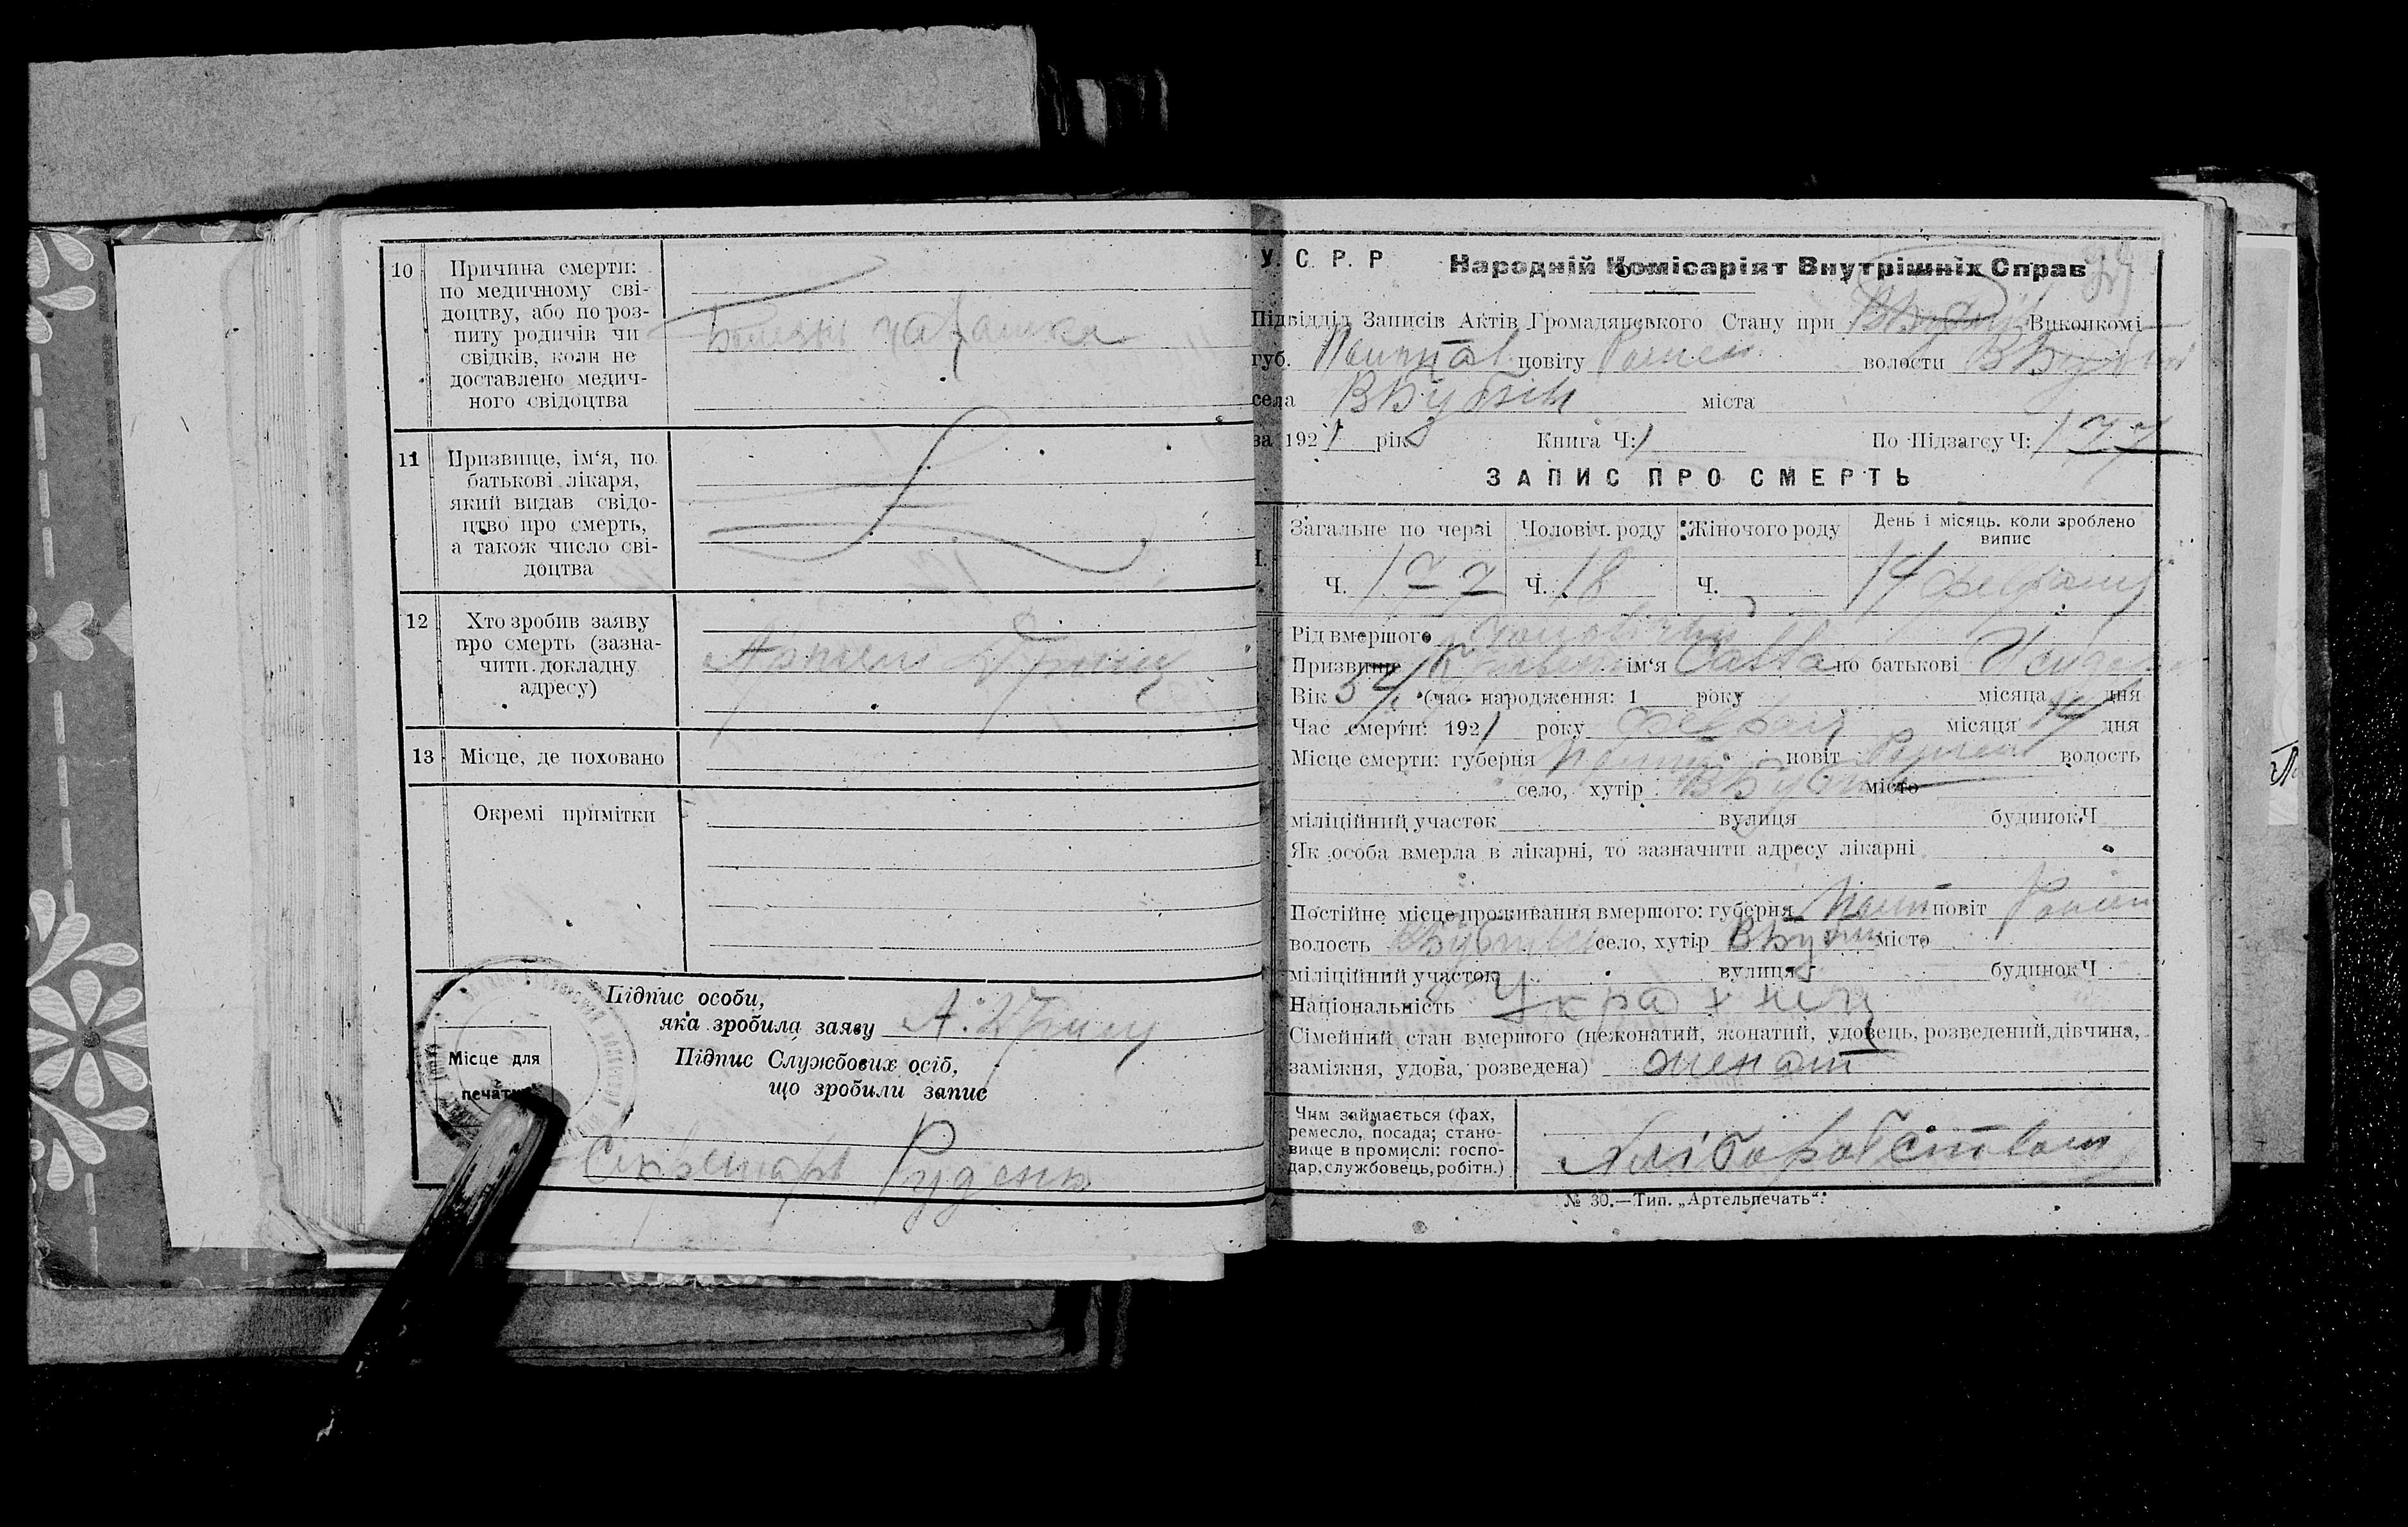 10 Причина смерти:
по медичному сві-
доцтву, або по роз-
питу родичів чи
свідків, коли не
доставлено медич-
ного свідоцтва
11 Призвище, ім‘я, по
батькові лікаря,
який видав свідо-
цтво про смерть,
а також число сві-
доцтва
12 Хто зробив заяву
про смерть (зазна-
чити докладну
адресу)
13 Місце, де поховано
Окремі примітки
Підпис особи,
яка зробила заяву А.
Підпис Службових осіб,
що зробили запис
Місце для
печатки
Секретарь Руденко
У. С. Р. Р Народній Комісаріят Внутрішніх Справ
Підвідділ Записів Актів Громадянського Стану при Виконкомі
губ. Полтав повіту Ромен волости ВБубни
села ВБубни міста
за 1921 рік Книга Ч: 1 По Підзагсу Ч: 177
ЗАПИС ПРО СМЕРТЬ
Загальне по черзі Чоловіч. роду Жіночого роду День і місяць. коли зроблено
випис
Ч. 177 Ч. 18 Ч. 14 февраля
Рід вмершого
Призвище ім‘я Савва по батькові
Вік 54 (час народження: 1 року місяца дня
Час смерти: 1921 року февраля місяця 14 дня
Місце смерти: губерня Полтав повіт Ромен волость
село, хутір ВБубни місто
міліційний участок вулиця будинок Ч
Як особа вмерла в лікарні, то зазначити адресу лікарні
Постійне місце проживання вмершого: губерня Полт повіт Ромен
волость село, хутір ВБубни місто
міліційний участок вулиця будинок Ч
Національність Українец
Сімейний стан вмершого (нежонатий, жонатий, удовець, розведений, дівчина,
заміжня, удова, розведена) женат
Чим займається (фах,
ремесло, посада; стано-
вище в промислі: госпо-
дар, службовець, робітн.)
Хліборобством
№ 30.—Тип. „Артельпечать“.